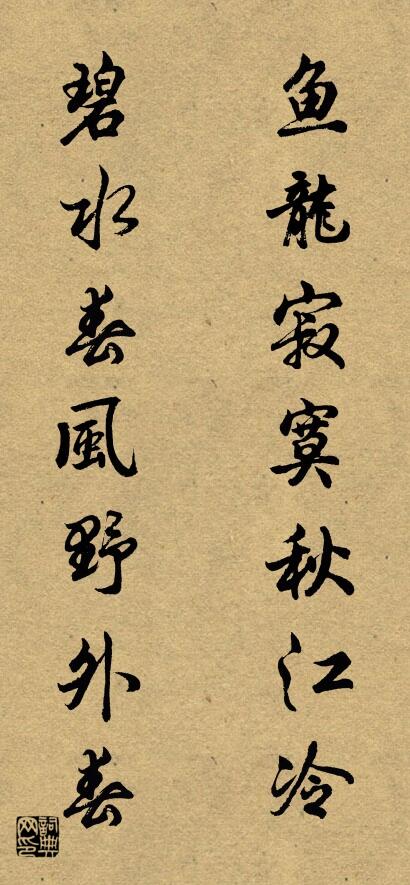 鱼龍寂寞秋江冷
碧水春風野外春
詞典网印